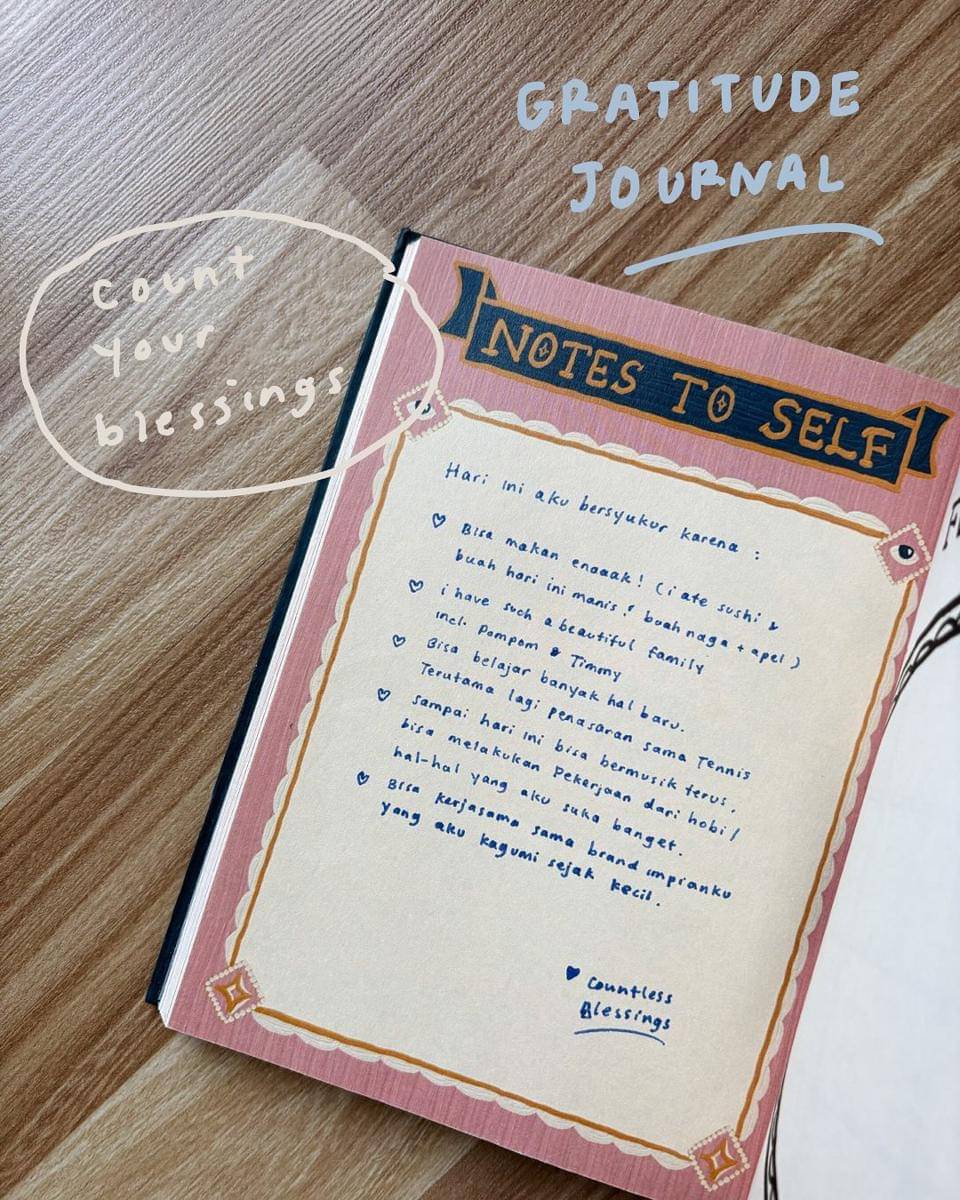 GRATITUDE
JOURNAL
Count
your
blessings
NOTES TO SELF
Hari ini aku bersyukur karena :
♡ Bisa makan enaaak! (i ate sushi &
buah hari ini manis! buah naga + apel)
♡ i have such a beautiful family
incl. Pompom & Timmy
♡ Bisa belajar banyak hal baru.
Terutama lagi penasaran sama Tennis
♡ Sampai hari ini bisa bermusik terus.
bisa melakukan pekerjaan dari hobi /
hal-hal yang aku suka banget.
♡ Bisa kerjasama sama brand impianku
yang aku kagumi sejak kecil.
♥ Countless
Blessings